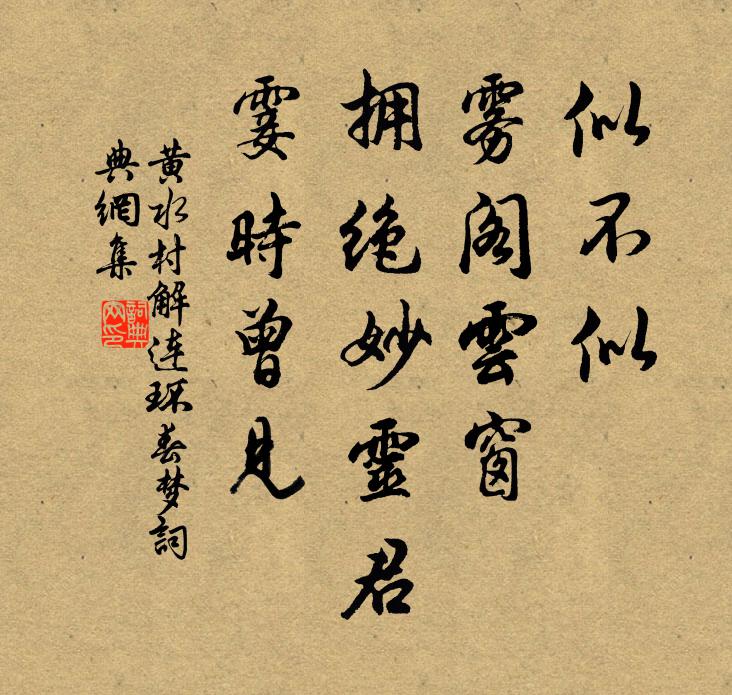 似不似
雾阁雲窗
拥绝妙靈君
霎時曾見
黄水村解连环春梦詞
典網集
詞典
网印